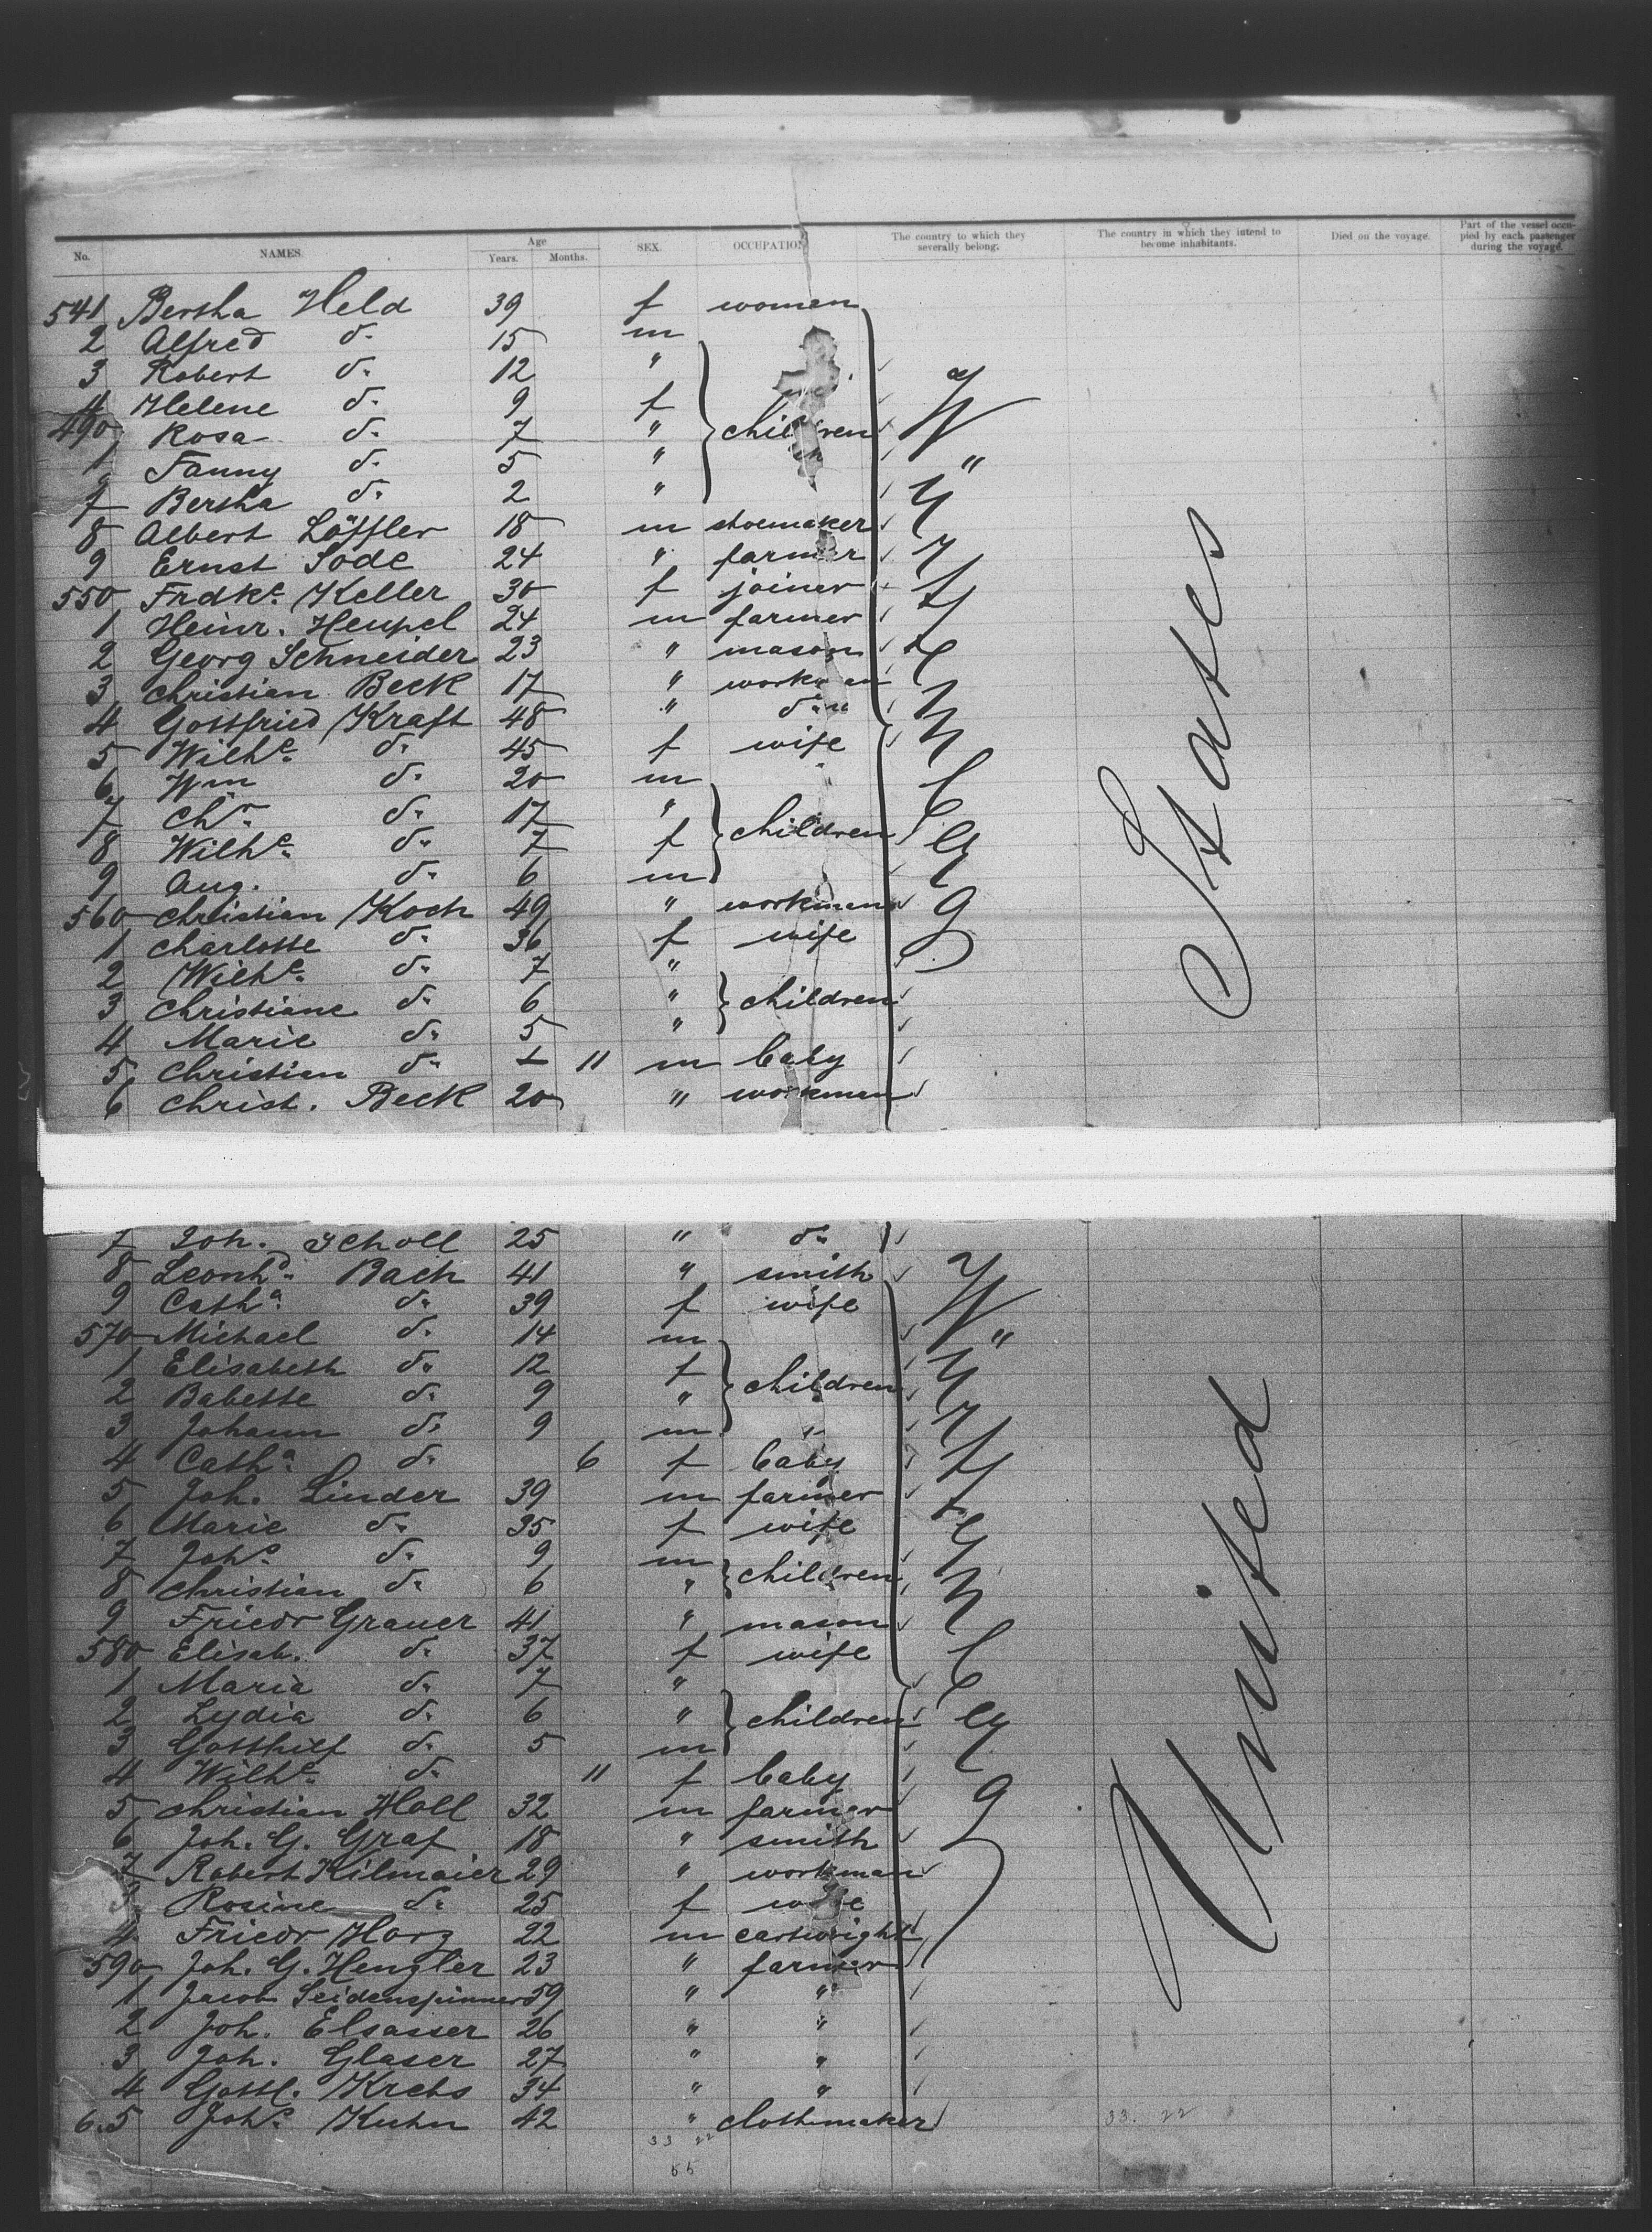 No. NAMES. Age Years. Months. SEX. OCCUPATION The country to which they severally belong: The country in which they intend to become inhabitants. Died on the voyage. Part of the vessel occupied by each passenger during the voyage.
541 Bertha Held 39 f women
2 Alfred do. 15 m
3 Robert do. 12 "
4 Helene do. 9 f
490 Rosa do. 7 " children
Fanny do. 5 "
7 Bertha do. 2 "
8 Albert Löffler 18 m shoemaker
9 Ernst Sode 24 " farmer
550 Frdke. Keller 30 f joiner
1 Heinr. Heupel 24 m farmer
2 Georg Schneider 23 " mason
3 Christian Beck 17 " workman
4 Gottfried Kraft 48 " do.
5 Wilhe. do. 45 f wife
6 Wm do. 20 m
7 Chr. do. 17 "
8 Wilhe. do. 7 f children
9 Aug. do. 6 m
560 Christian Koch 49 " workman
1 Charlotte do. 36 f wife
2 Wilhe. do. 7 "
3 Christiane do. 6 " children
4 Marie do. 5 "
5 Christian do. 11 m baby
6 Christ. Beck 20 " workman
7 Joh. Scholl 25 " do.
8 Leonhd. Bach 41 " smith
9 Catha. do. 39 f wife
570 Michael do. 14 m
1 Elisabeth do. 12 f
2 Babette do. 9 " children
3 Johann do. 9 m "
4 Catha. do. 6 f baby
5 Joh. Linder 39 m farmer
6 Marie do. 35 f wife
7 Johs. do. 9 m
8 Christian do. 6 " children
9 Friedr Grauer 41 " mason
580 Elisab. do. 37 f wife
1 Maria do. 7 "
2 Lydia do. 6 " children
3 Gotthilf do. 5 m
4 Wilhe. do. 11 f baby
5 Christian Holl 32 m farmer
6 Joh. G. Graf 18 " smith
7 Robert Kilmaier 29 " workman
Rosine do. 25 f wife
Friedr Horz 22 m cartwright
590 Joh. G. Hengler 23 " farmer
1 Jacob Seidenspinner 59 " "
2 Joh. Elsasser 26 " "
3 Joh. Glaser 27 " "
4 Gottl. Krebs 34 " "
5 Johs. Kuhn 42 " clothmaker
33 22
33. 22
55
United States